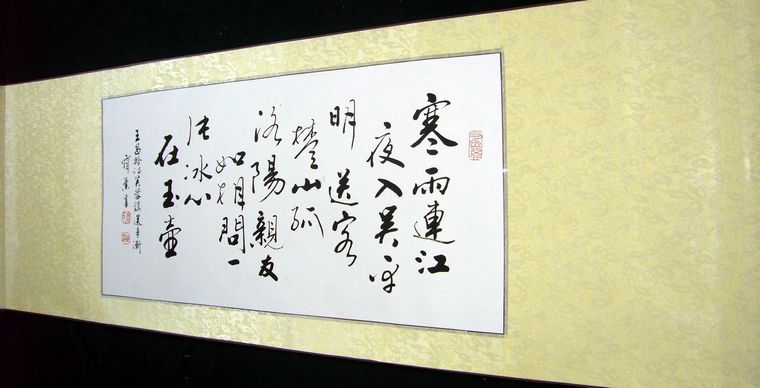 寒雨連江
夜入吴平
明送客
楚山孤
洛陽親友
如相問一
片冰心
在玉壺
王昌龄诗芙蓉樓送辛漸
書